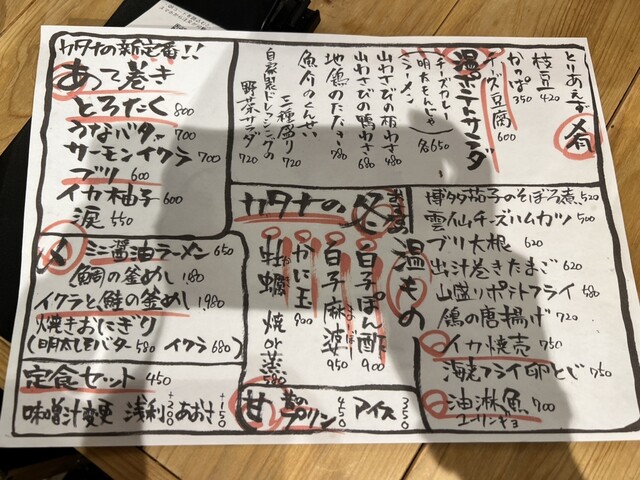 カタナの新定番!!
あって巻き
とろたく 800
うなバター 700
サーモンイクラ 700
ブリ 600
イカ柚子 600
涙 550
とりあえず
肴
枝豆 420
かっぱ 350
チーズ豆腐 600
温ポテトサラダ
チーズカレー
明太もんじゃ
ラーメン
各650
山わさびの板わさ 480
山わさびの鴨わさ 680
地鶏のたたき 780
魚介のくんせい
三種盛り 720
自家製ドレッシングの
野菜サラダ 720
〆
ミニ醤油ラーメン 650
鯛の釜めし 1,180
イクラと鮭の釜めし 1,980
焼きおにぎり
(明太しそバター 580 イクラ 680)
定食セット 450
味噌汁変更 浅利+200 あおさ+150
カタナの冬
白子ぽん酢 900
白子麻婆 950
かに玉 900
牡蠣 焼or蒸 580
甘
昔のプリン 450
アイス 350
温もの
博多茄子のそぼろ煮 520
雲仙チーズハムカツ 500
ブリ大根 620
出汁巻きたまご 620
山盛りポテトフライ 580
鶏の唐揚げ 720
イカ焼売 750
海老フライ卵とじ 750
油淋魚 700
ユーリンギョ